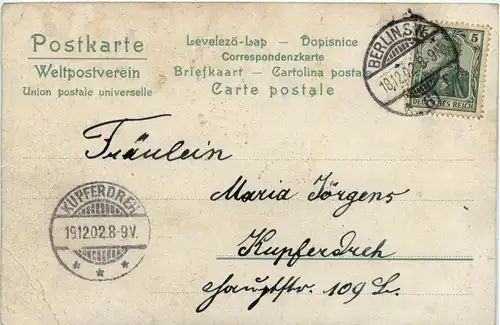 Postkarte
Weltpostverein
Union postale universelle
Levelező-Lap – Dopisnice
Correspondenzkarte
Briefkaart – Cartolina postale
Carte postale
BERLIN.S.
18.12.02.8-9
5
DEUTSCHES REICH
Fräulein
Maria Jörgens
Kupferdreh
Hauptstr. 109 L.
KUPFERDREH
19.12.02.8-9V.